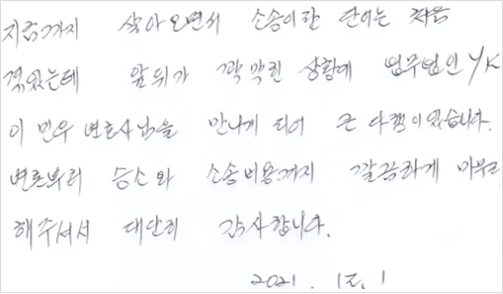 지금까지 살아오면서 소송이란 단어는 처음
겪었는데 앞뒤가 꽉막힌 상황에 법무법인 YK
이민우 변호사님을 만나게 되어 큰 다행이었습니다.
변론부터 승소와 소송비용까지 깔끔하게 마무리
해주셔서 대단히 감사합니다.
2021. 12. 1